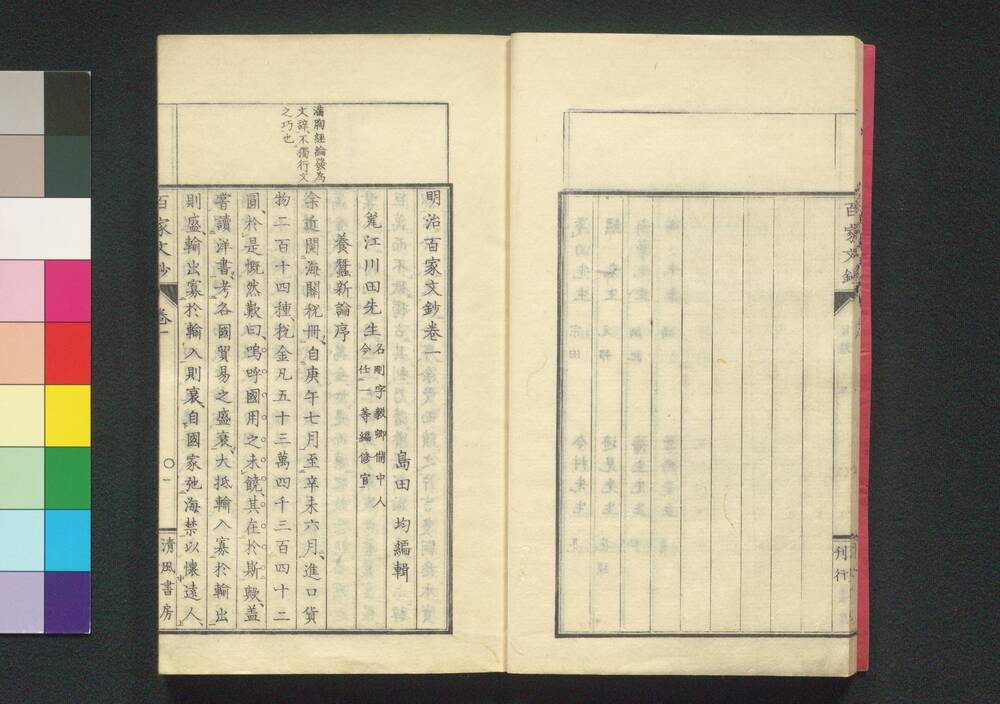 百家文鈔
刊行
明治百家文鈔卷一
島田均編輯
甕江川田先生
名剛字毅卿備中人
今仕一等編修官
養蠶新論序
余近閱海關稅冊、自庚午七月至辛未六月、進口貨
物二百十四種、稅金凡五十三萬四千三百四十二
圓、於是慨然歎曰、嗚呼國用之未饒、其在於斯歟、蓋
嘗讀洋書、考各國貿易之盛衰、大抵輸入寡於輸出
則盛、輸出寡於輸入則衰、自國家弛海禁以懷遠人、
滿胸經綸發為
文辭不獨行文
之巧也
百家文鈔
卷一
〇一
清風書房